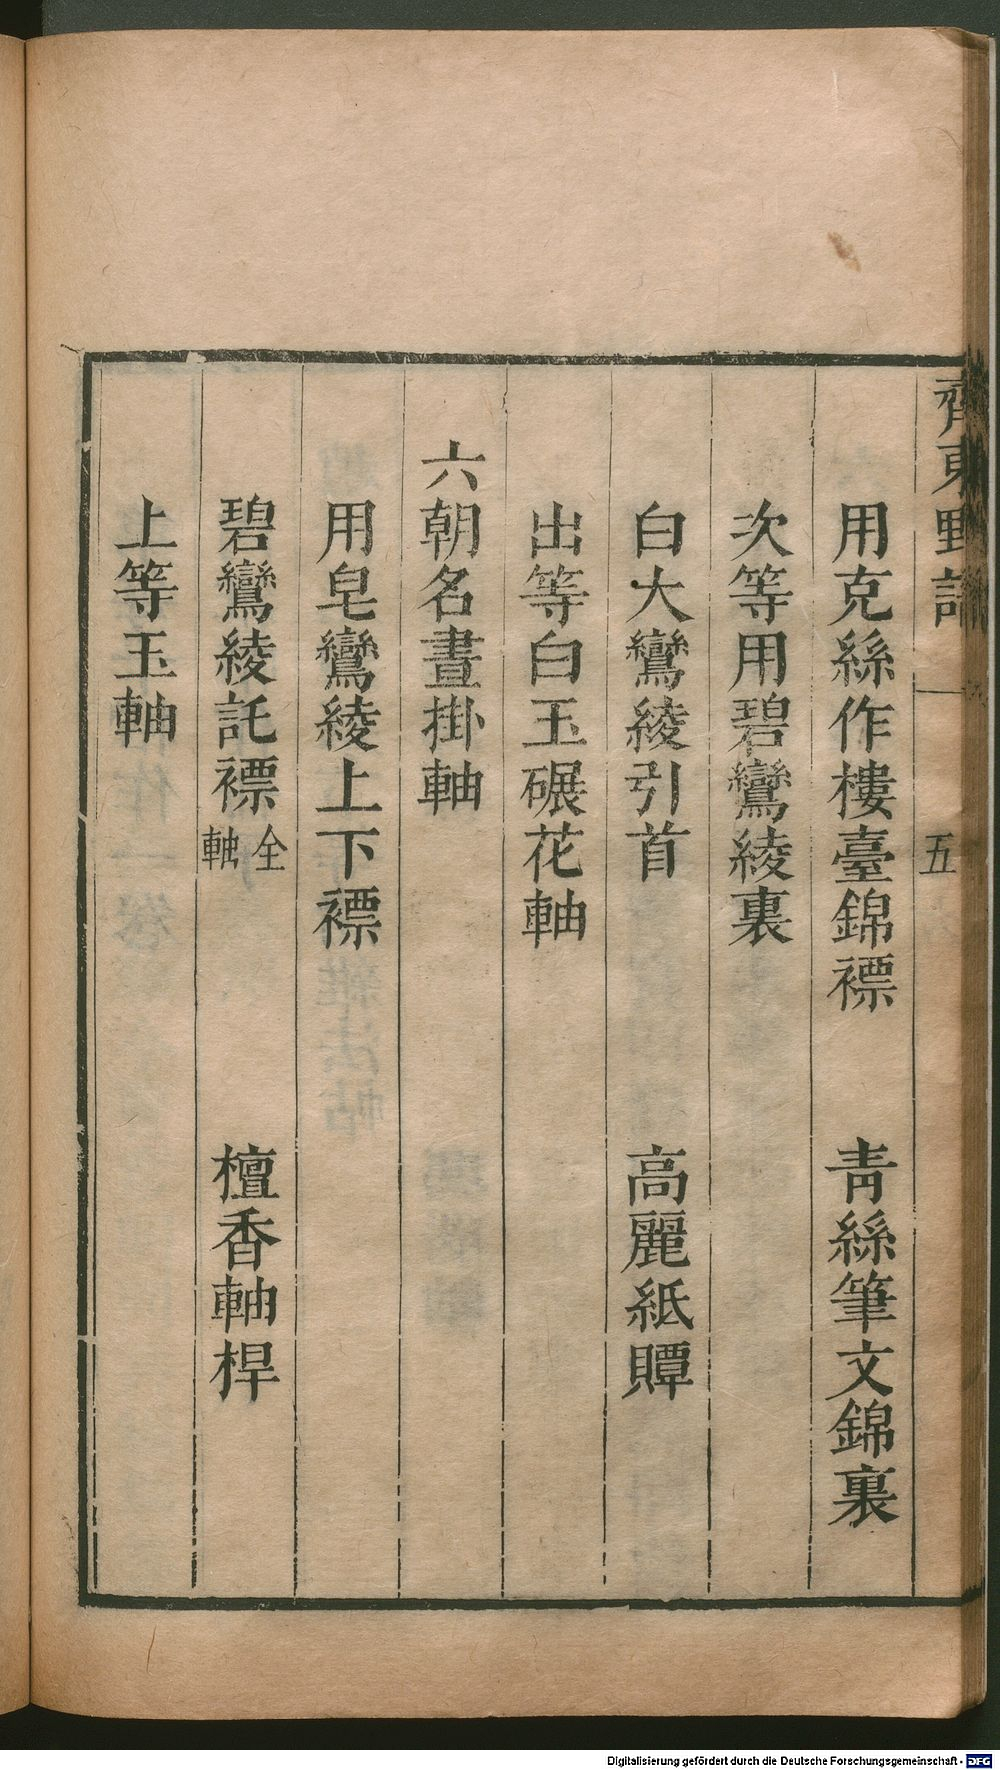 齊東野語 五
用克絲作樓臺錦褾 青絲簟文錦裏
次等用碧鸞綾裏
白大鸞綾引首 高麗紙贉
出等白玉碾花軸
六朝名畫掛軸
用皂鸞綾上下褾
碧鸞綾託褾全軸 檀香軸桿
上等玉軸
Digitalisierung gefördert durch die Deutsche Forschungsgemeinschaft - DFG